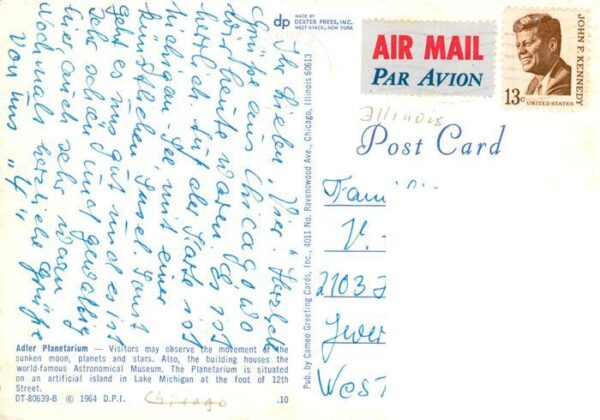 dp MADE BY
DEXTER PRESS, INC.
WEST NYACK, NEW YORK
AIR MAIL
PAR AVION
JOHN F. KENNEDY
13c UNITED STATES
Illinois
Post Card
Pub. by Cameo Greeting Cards, Inc., 4011 No. Ravenswood Ave., Chicago, Illinois 60613
Ihr lieben, Vier. Herzliche
Grüße aus Chicago wo
wir heute waren. Es ist
herrlich. Auf der Karte ist
Michigan See, mit einer
Insel. Sonst
geht es uns gut und es ist
sehr schön und gewaltig
hier auch sehr warm
Nochmals herzliche Grüße
von uns "4"
Fami
V.
2103
Jever
West
Adler Planetarium — Visitors may observe the movement of the
sunken moon, planets and stars. Also, the building houses the
world-famous Astronomical Museum. The Planetarium is situated
on an artificial island in Lake Michigan at the foot of 12th
Street.
DT-80639-B © 1964 D.P.I. .10
Chicago